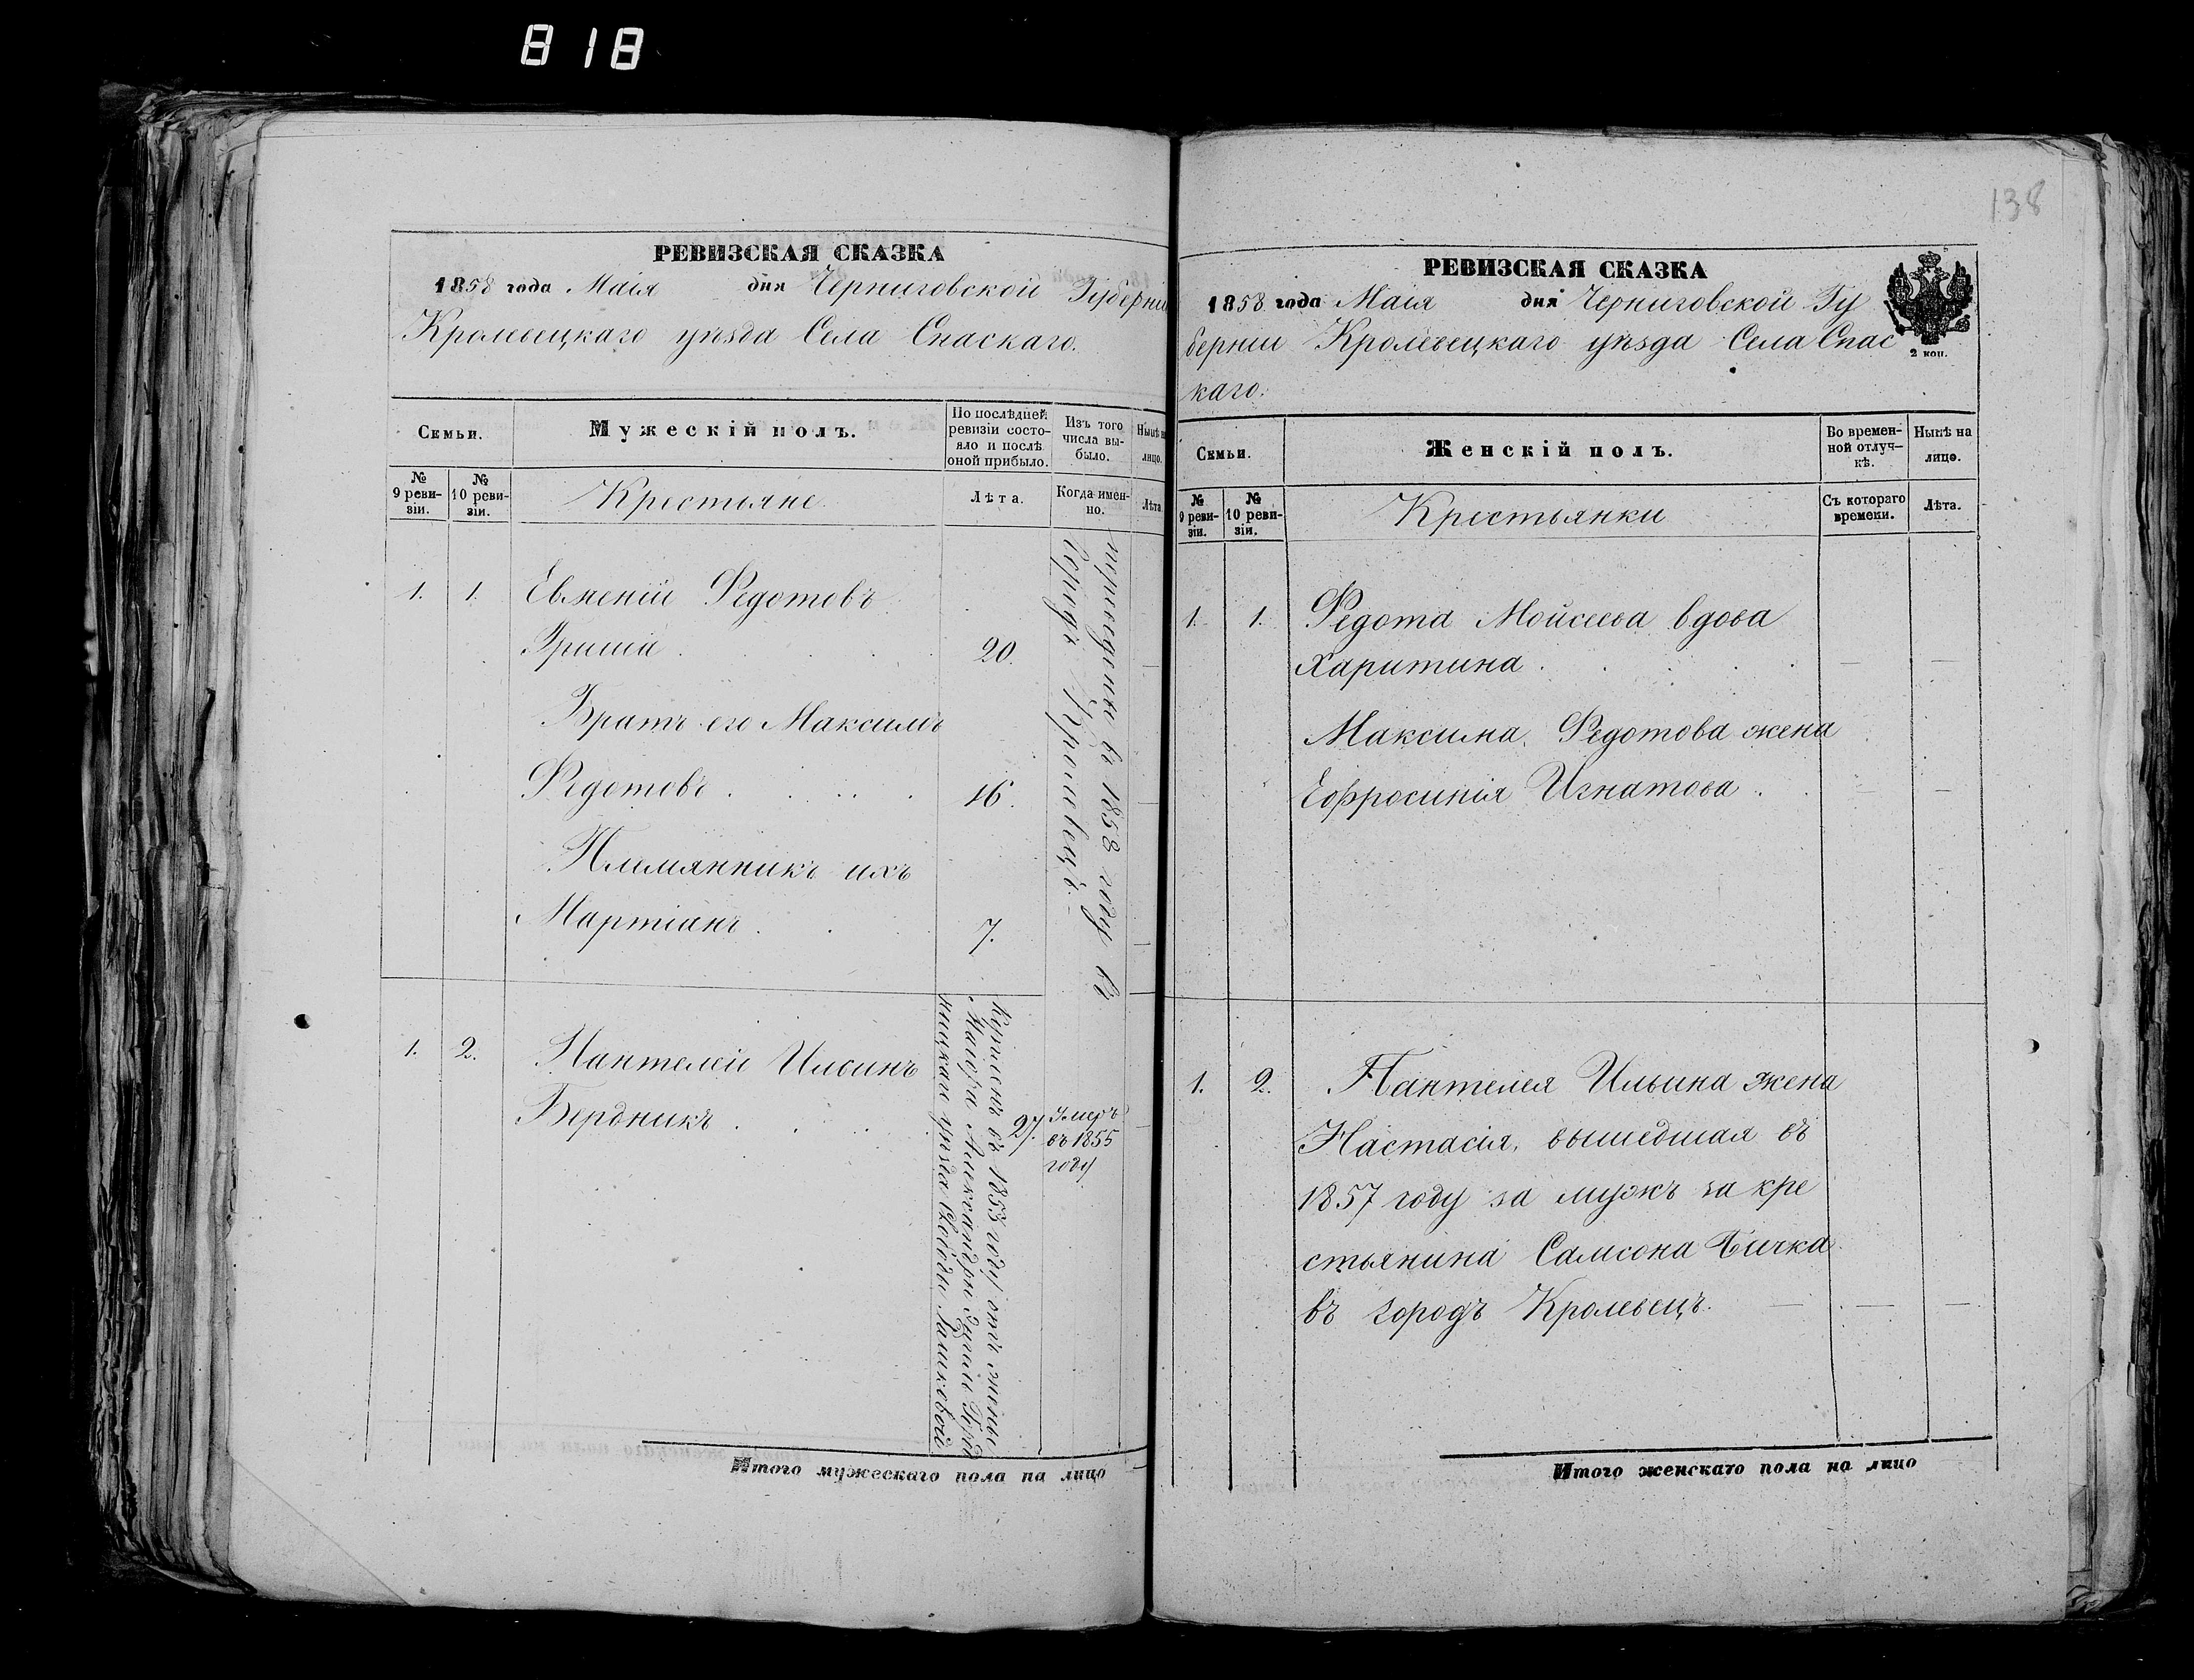 818
138
РЕВИЗСКАЯ СКАЗКА
1858 года Маія дня Черниговской Губерніи
Кролевецкаго уѣзда Села Спаскаго.
Семьи.
Мужескій полъ.
По послѣдней ревизіи состояло и послѣ оной прибыло.
Изъ того числа выбыло.
Нынѣ на лицо.
№ 9 ревизіи.
№ 10 ревизіи.
Крестьяне.
Лѣта.
Когда именно.
Лѣта.
1. 1. Евмений Федотовъ
20.
Братъ его Максимъ
Федотовъ 16.
Племянникъ ихъ
Мартіанъ 7.
переведены въ 1858 году въ
городъ Кролевецъ.
1. 2. Пантелей Ильинъ
Бердникъ 27.
Купленъ въ 1853 году отъ жены
Маіора Александры
уѣзда Слободы
Умеръ
въ 1855
году
Итого мужескаго пола на лицо
РЕВИЗСКАЯ СКАЗКА
1858 года Маія дня Черниговской Гу
берніи Кролевецкаго уѣзда Села Спас
каго.
2 коп.
Семьи.
Женскій полъ.
Во временной отлучкѣ.
Нынѣ на лицо.
№ 9 ревизіи.
№ 10 ревизіи.
Крестьянки
Съ котораго времени.
Лѣта.
1. 1. Федота Мойсеева вдова
Харитина
Максима Федотова жена
Ефросинія Игнатова
1. 2. Пантелея Ильина жена
Настасія, вышедшая въ
1857 году за мужъ за кре
стьянина Самсона Бичка
въ городъ Кролевецъ.
Итого женскаго пола на лицо